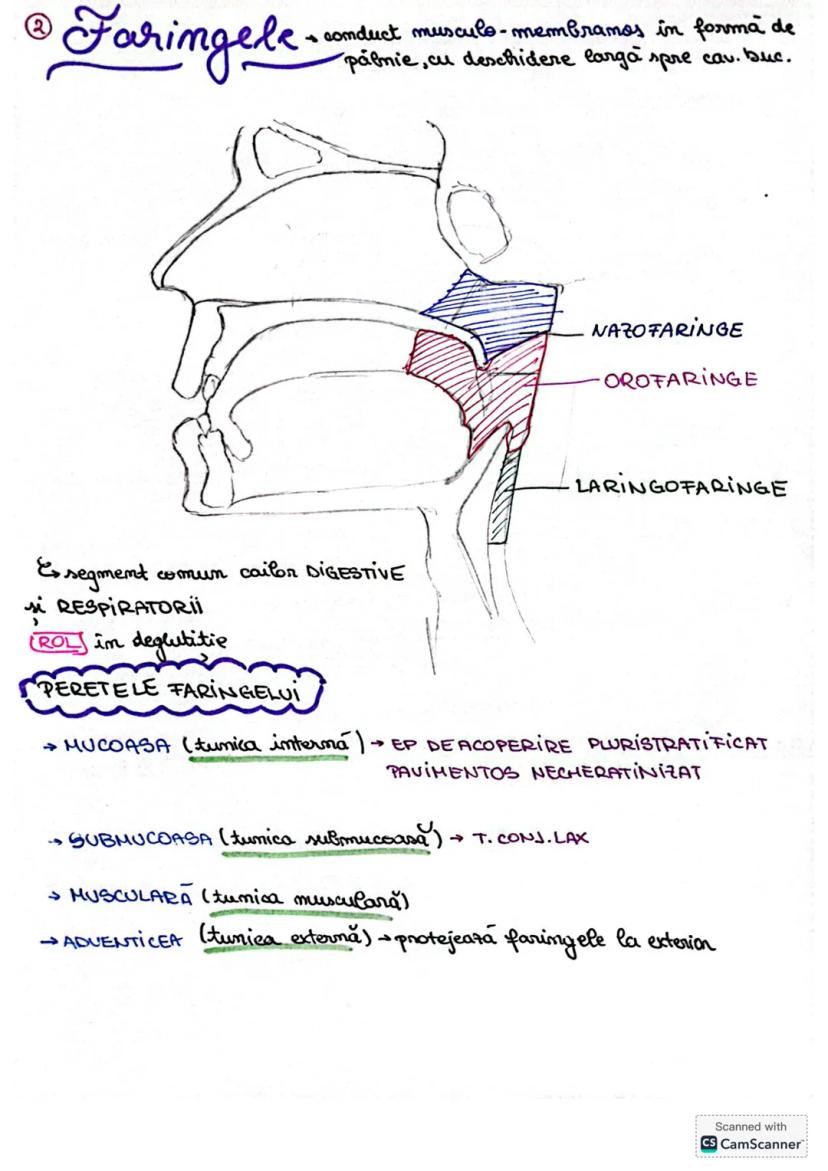 ② Faringele → conduct musculo-membranos în formă de
pâlnie, cu deschidere largă spre cav. buc.
NAZOFARINGE
OROFARINGE
LARINGOFARINGE
↳ segment comun căilor DIGESTIVE
și RESPIRATORII
ROL în deglutiție
PERETELE FARINGELUI
→ MUCOASA (tunica internă) → EP DE ACOPERIRE PLURISTRATIFICAT
PAVIMENTOS NECHERATINIZAT
→ SUBMUCOASA (tunica submucoasă) → T. CONJ. LAX
→ MUSCULARĂ (tunica musculară)
→ ADVENTICEA (tunica externă) → protejează faringele la exterior
Scanned with
CS CamScanner